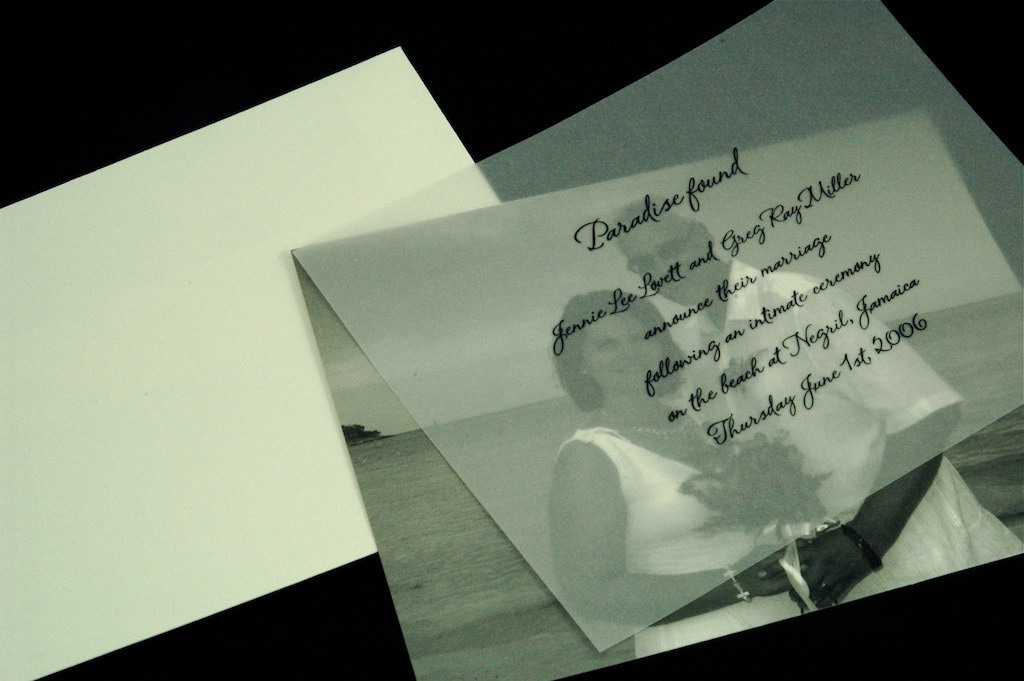 Paradise found
Jennie Lee Lovett and Greg Ray Miller
announce their marriage
following an intimate ceremony
on the beach at Negril, Jamaica
Thursday June 1st, 2006